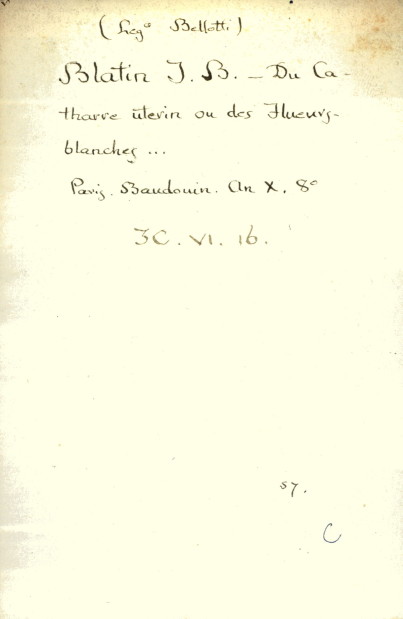 (Leg° Bellotti)
Blatin J. B. – Du Ca-
tharre utérin ou des Flueurs-
blanches ...
Paris. Baudouin. An X. 8°
3C. VI. 16.
57.
C